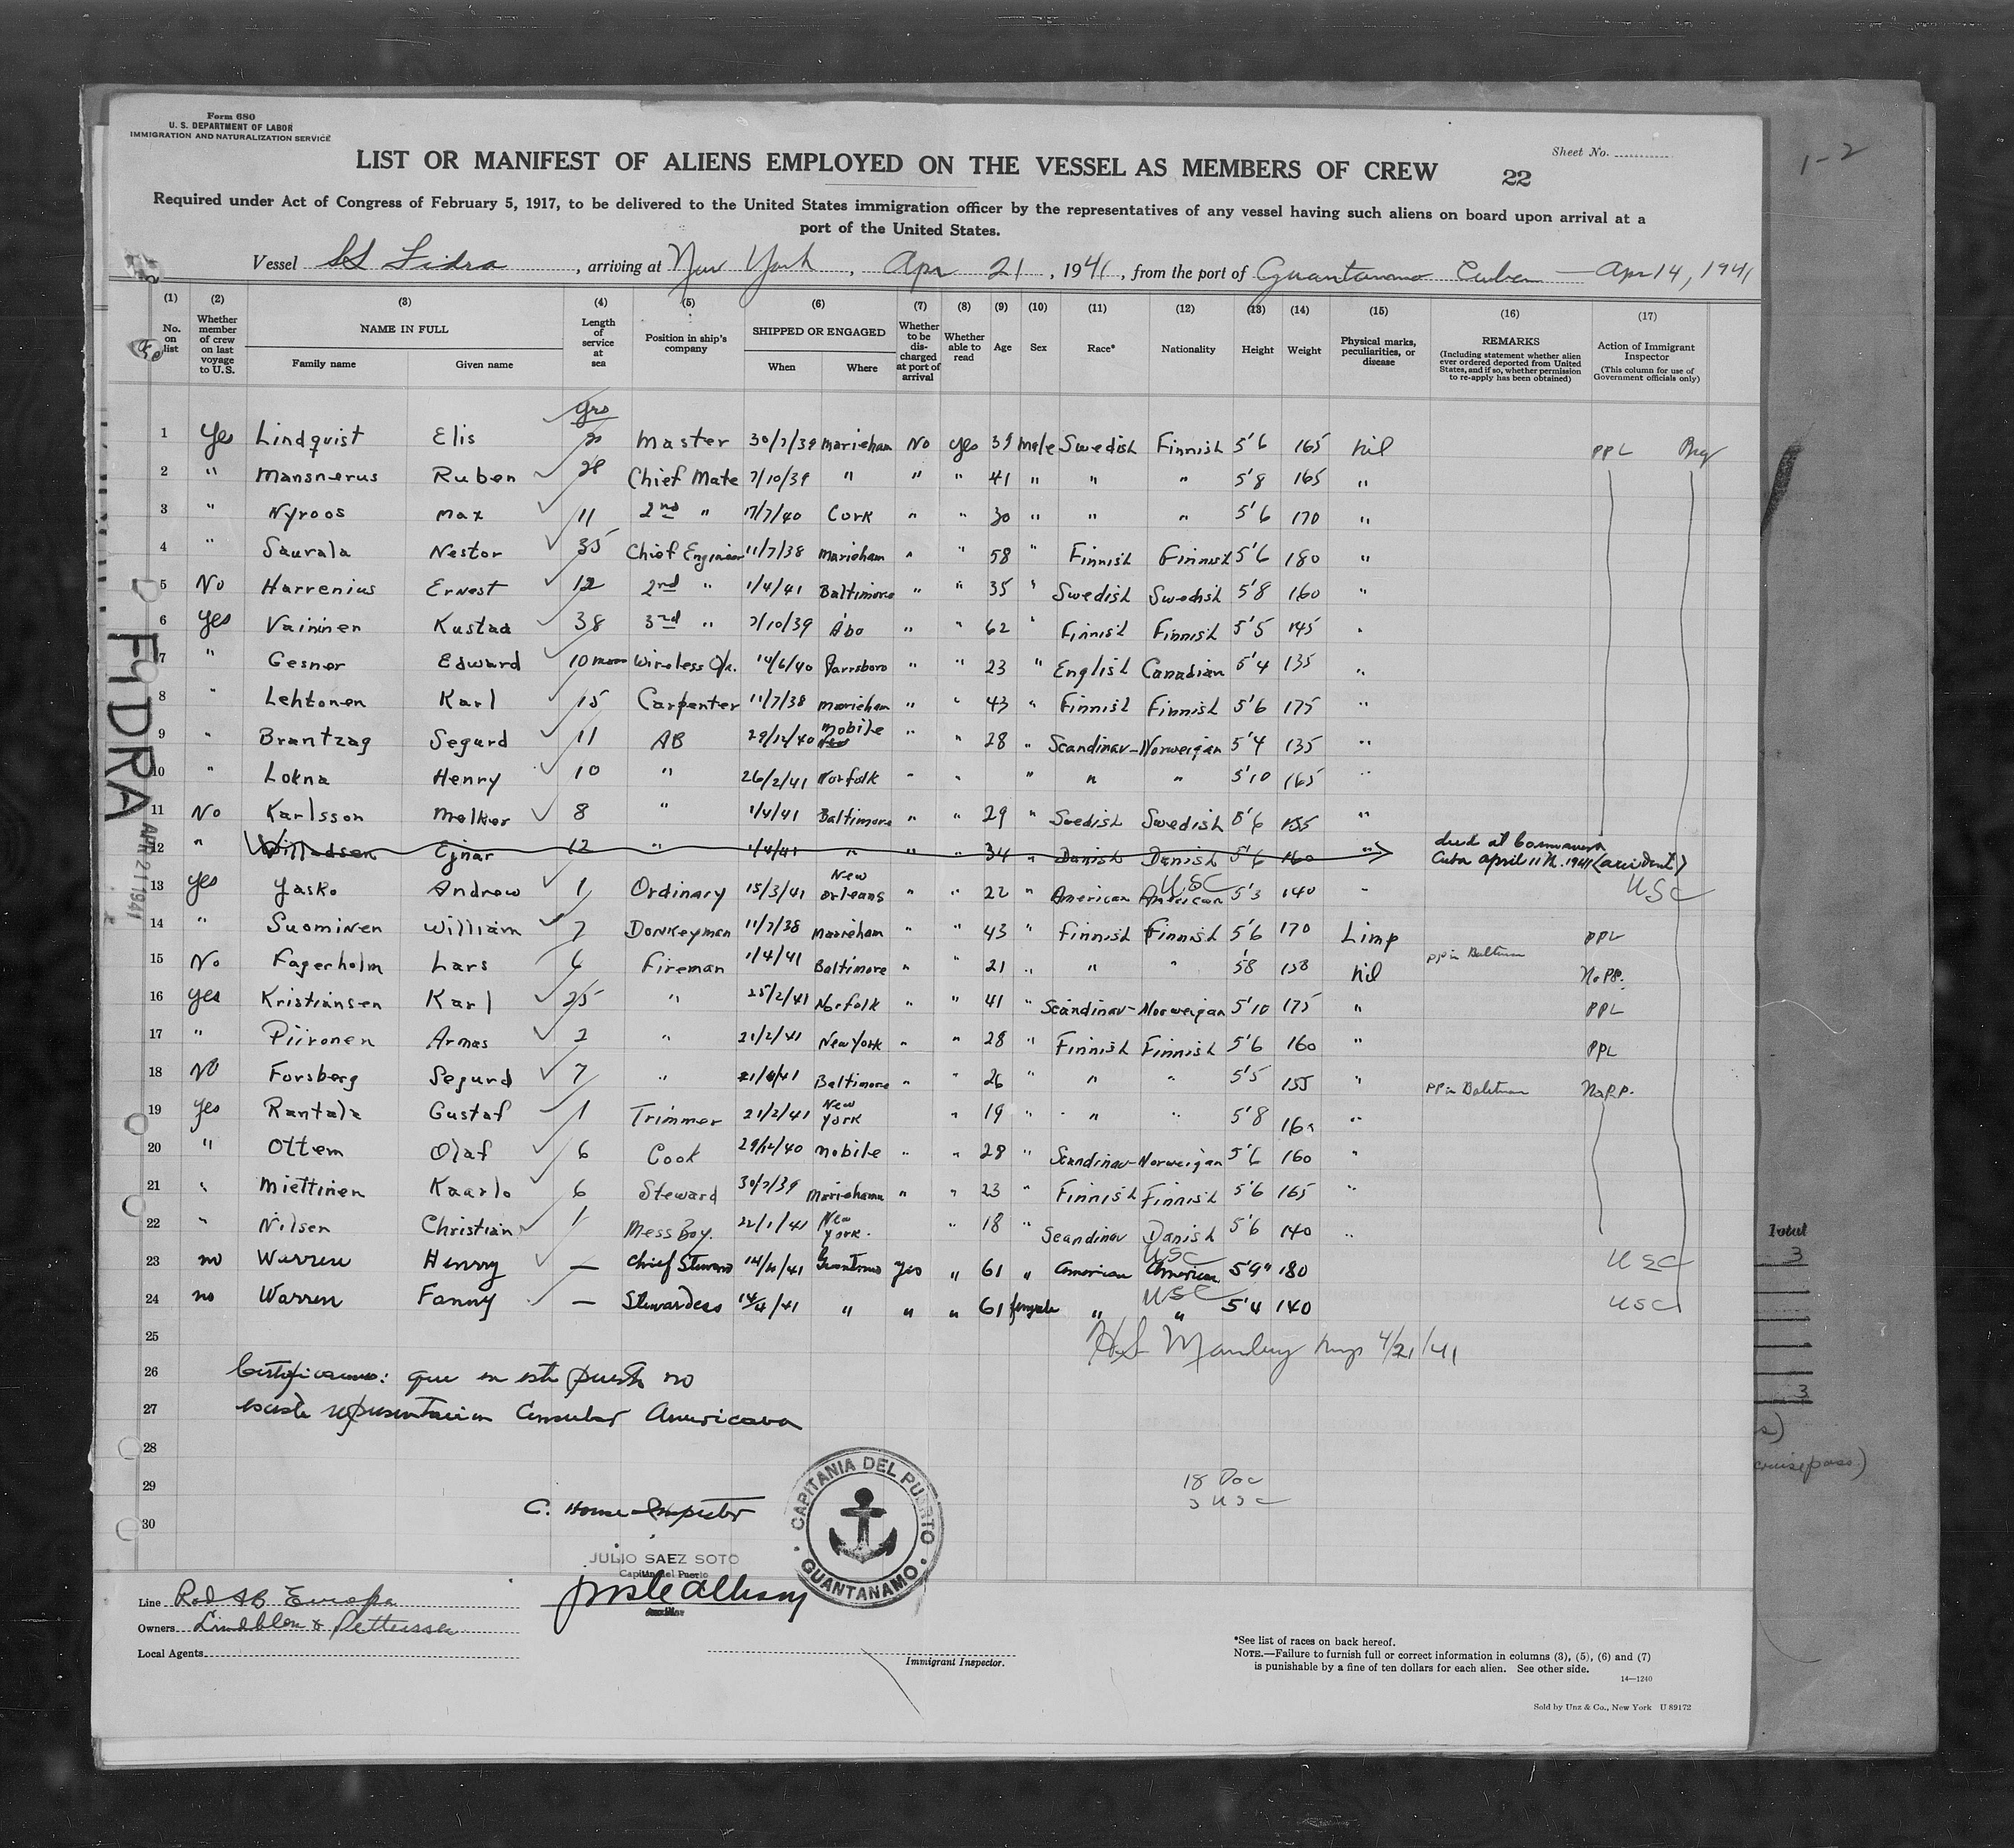 Form 680
U. S. DEPARTMENT OF LABOR
IMMIGRATION AND NATURALIZATION SERVICE
Sheet No.
1-2
LIST OR MANIFEST OF ALIENS EMPLOYED ON THE VESSEL AS MEMBERS OF CREW
22
Required under Act of Congress of February 5, 1917, to be delivered to the United States immigration officer by the representatives of any vessel having such aliens on board upon arrival at a
port of the United States.
Vessel SS Fidra, arriving at New York, Apr 21, 1941, from the port of Guantanamo Cuba — Apr 14, 1941
(1) (2) (3) (4) (5) (6) (7) (8) (9) (10) (11) (12) (13) (14) (15) (16) (17)
No. on list
Whether member of crew on last voyage to U.S.
NAME IN FULL
Family name Given name
Length of service at sea
Position in ship's company
SHIPPED OR ENGAGED
When Where
Whether to be discharged at port of arrival
Whether able to read
Age
Sex
Race*
Nationality
Height
Weight
Physical marks, peculiarities, or disease
REMARKS
(Including statement whether alien ever ordered deported from United States, and if so, whether permission to re-apply has been obtained)
Action of Immigrant Inspector
(This column for use of Government officials only)
yrs
1 Yes Lindquist Elis 20 Master 30/7/39 Marieham No yes 39 male Swedish Finnish 5'6 165 Nil PPL
2 " Mansnerus Ruben 28 Chief Mate 7/10/39 " " " 41 " " " 5'8 165 "
3 " Nyroos Max 11 2nd " 17/7/40 Cork " " 30 " " " 5'6 170 "
4 " Saurala Nestor 35 Chief Engineer 11/7/38 Marieham " " 58 " Finnish Finnish 5'6 180 "
5 No Harrenius Ernest 12 2nd " 1/4/41 Baltimore " " 35 " Swedish Swedish 5'8 160 "
6 Yes Vaininen Kustaa 38 3rd " 7/10/39 Åbo " " 62 " Finnish Finnish 5'5 145 "
7 " Gesner Edward 10 mos Wireless Op. 14/6/40 Parrsboro " " 23 " English Canadian 5'4 135 "
8 " Lehtonen Karl 15 Carpenter 11/7/38 Marieham " " 43 " Finnish Finnish 5'6 175 "
9 " Brantzag Segurd 11 AB 29/12/40 Mobile " " 28 " Scandinav- Norweigan 5'4 135 "
10 " Lokna Henry 10 " 26/2/41 Norfolk " " " " " 5'10 165 "
11 No Karlsson Melker 8 " 1/4/41 Baltimore " " 29 " Swedish Swedish 5'6 155 "
12 " Willadsen Ejnar 12 " 1/4/41 " " " 34 " Danish Danish 5'6 160 " died at
Cuba April 11th. 1941 (accident)
13 Yes Yasko Andrew 1 Ordinary 15/3/41 New Orleans " " 22 " American American USC 5'3 140 " USC
14 " Suominen William 7 Donkeyman 11/7/38 Marieham " " 43 " Finnish Finnish 5'6 170 Limp PPL
15 No Fagerholm Lars 6 Fireman 1/4/41 Baltimore " " 21 " " " 5'8 158 Nil PP in No PP.
16 Yes Kristiansen Karl 25 " 25/2/41 Norfolk " " 41 " Scandinav- Norweigan 5'10 175 " PPL
17 " Piironen Armas 2 " 21/2/41 New York " " 28 " Finnish Finnish 5'6 160 " PPL
18 No Forsberg Segurd 7 " 21/4/41 Baltimore " " 26 " " " 5'5 155 " PP in No P.P.
19 Yes Rantala Gustaf 1 Trimmer 21/2/41 New York " 19 " " " 5'8 160 "
20 " Ottem Olaf 6 Cook 29/12/40 Mobile " " 28 " Scandinav- Norweigan 5'6 160 "
21 " Miettinen Kaarlo 6 Steward 30/7/39 Mariehamn " " 23 " Finnish Finnish 5'6 165 "
22 " Nilsen Christian 1 Mess Boy. 22/1/41 New York. " 18 " Scandinav Danish 5'6 140 "
23 no Warren Henrry — Chief Steward 14/4/41 Guantnmo yes " 61 " American American USC 5'9" 180 USC
24 no Warren Fanny — Stewardess 14/4/41 " " " 61 female " " USC 5'4 140 USC
25
4/21/41
26 Certificamos: que en este puerto no
27 existe representacion Consular Americana
28
29
30
18 Doc
3 USC
C. House Inspector
CAPITANIA DEL PUERTO
GUANTANAMO
JULIO SAEZ SOTO
Capitán del Puerto
Line Red AB Europa
Owners Lindblom &
Local Agents
Immigrant Inspector.
*See list of races on back hereof.
NOTE.—Failure to furnish full or correct information in columns (3), (5), (6) and (7)
is punishable by a fine of ten dollars for each alien. See other side.
14—1240
Sold by Unz & Co., New York U 89172
FIDRA
APR 21 1941
Total
3
3